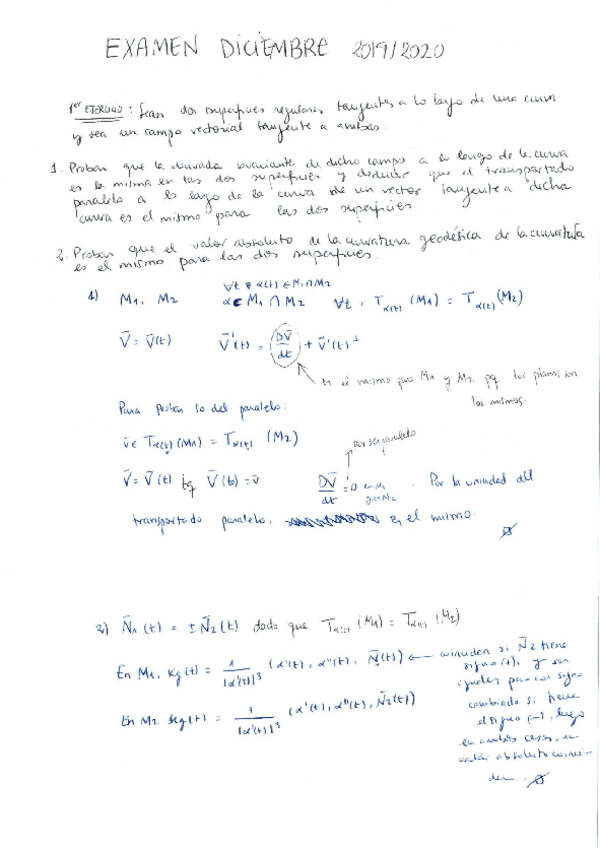 EXAMEN DICIEMBRE 2019/2020
1er EJERCICIO: Sean dos superficies regulares tangentes a lo largo de una curva
y sea un campo vectorial tangente a ambas.
1. Probar que la derivada covariante de dicho campo a lo largo de la curva
es la misma en las dos superficies y deducir que el transportado
paralelo a lo largo de la curva de un vector tangente a dicha
curva es el mismo para las dos superficies
2. Probar que el valor absoluto de la curvatura geodésica de la curvatura
es el mismo para las dos superficies.
1) M1, M2 ∀t α(t) ∈ M1∩M2
α ⊂ M1 ∩ M2 ∀t, Tα(t) (M1) = Tα(t) (M2)
V̄ = V̄(t) V̄'(t) = DV̄/dt + V̄'(t)⊥
es el mismo para M1 y M2 pq los planos son
los mismos.
Para probar lo del paralelo:
v̄ ∈ Tα(t) (M1) = Tα(t) (M2)
por ser paralelo
V̄ = V̄(t) tq V̄(t0) = v̄ DV̄/dt = 0 en M1 y en M2. Por la unicidad del
transportado paralelo, es el mismo.
2) N̄1(t) = ± N̄2(t) dado que Tα(t) (M1) = Tα(t) (M2)
En M1, kg(t) = 1/|α'(t)|³ (α'(t), α''(t), N̄1(t)) ← coinciden si N̄2 tiene
signo (+), y son
iguales pero con signo
En M2 kg(t) = 1/|α'(t)|³ (α'(t), α''(t), N̄2(t)) cambiado si tiene
el signo (-), luego
en ambos casos, en
valor absoluto coinci-
den.